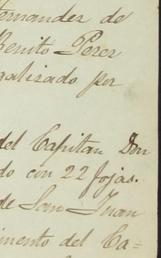 ernandez de
Benito Perez
galizado por
del Capitan Don
do con 22 fojas.
de San Juan
imento del Ca=